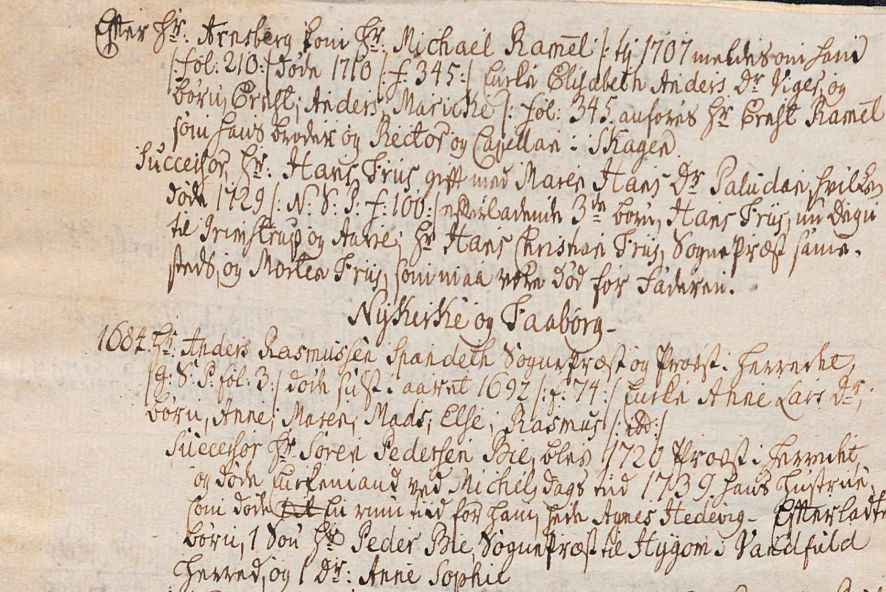 Efter Hr. Arnsberg kom Hr. Michael Ramel /: tj 1707 meldes om ham
/fol: 210:/ døde 1710 /: f. 345:/ Enke Elisabeth Anders Dr Viges, og
børn, Ernst, Anders, Maricke /: fol: 345 anføres Hr Ernst Ramel
som hans broder og Rector og Capellan i Skagen
Successor, Hr. Hans Friis gift med Maren Hans Dr Paludan, hvilken
døde 1729 /: N. S. P. f: 100:/ efterladende 3de børn, Hans Friis, nu Degn
til Grimstrup og Aarre; Hr Hans Christian Friis, Sognepræst samme-
steds, og Morten Friis, som maa være død for Faderen.
Nykirke og Faaborg-
1684. Hr. Anders Rasmussen Spandeth Sognepræst og Provst i Herredet,
/g. S. P. fol: 3:/ døde sidst i aaret 1692 /: f. 74:/ Enke Anne Lars Dr,
børn, Anne, Maren, Mads, Else, Rasmus
Successor Hr Søren Pedersen Bie, blev 1720 Provst i Herredet
og døde Enkemand ved Michels dags tid 1739. hans hustrue
som døde en rum tiid for ham, hede Agnes Hedevig- Efterladte
børn, 1 Søn Hr Peder Bie, Sognepræst til Hygom i Vandfuld
Herred, og 1 Dr: Anne Sophie